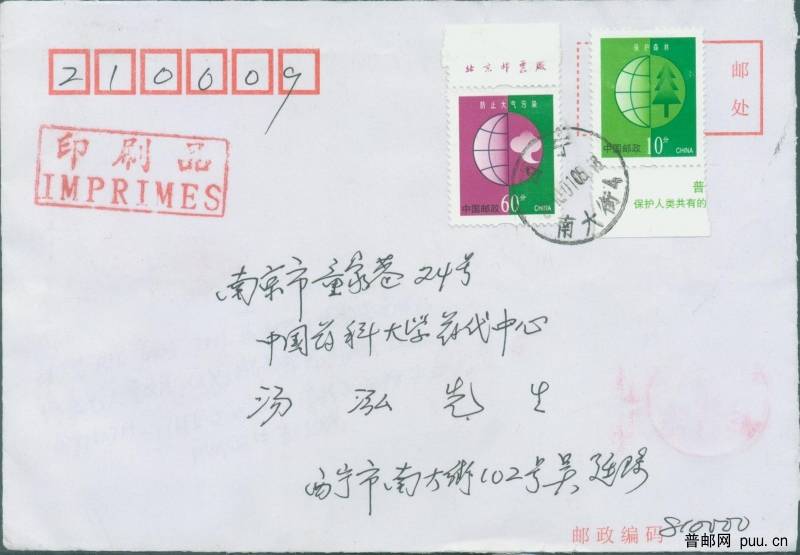 210009
北京邮票厂
邮
处
防止大气污染
中国邮政 60分 CHINA
保护森林
中国邮政 10分 CHINA
普
保护人类共有的
南大街
印刷品
IMPRIMES
南京市童家巷24号
中国药科大学药代中心
汤泓先生
西宁市南大街102号吴延
邮政编码 810000
普邮网 puu.cn